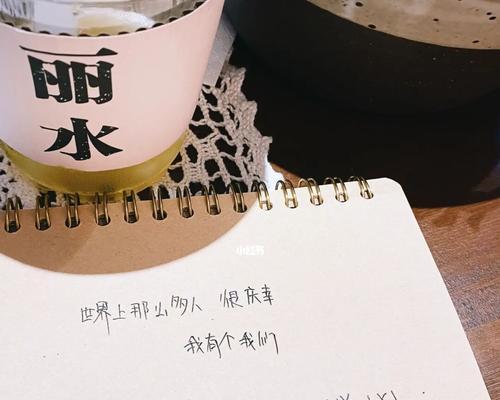 丽
水
小红书
世界上那么多人 很庆幸
我有个我们